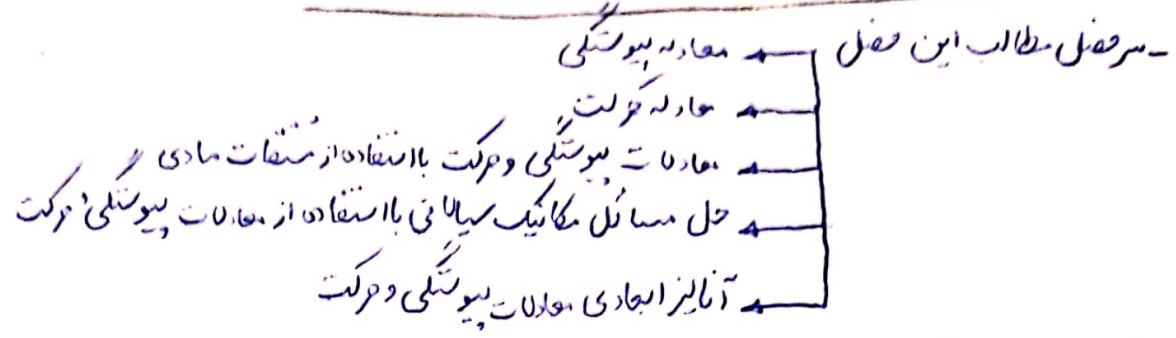 - سرفصل مطالب این فصل
معادله پیوستگی
معادله حرکت
معادلات پیوستگی و حرکت با استفاده از مشتقات مادی
حل مسائل مکانیک سیالاتی با استفاده از معادلات پیوستگی و حرکت
آنالیز ابعادی معادلات پیوستگی و حرکت